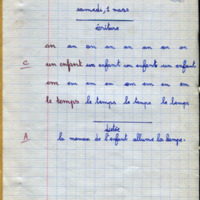 samedi, 1 mars
écriture
an an an an an an an an
C un enfant un enfant un enfant un enfant
em em em em em em em em
le temps le temps le temps le temps
Dictée
A la maman de l'enfant allume la lampe.